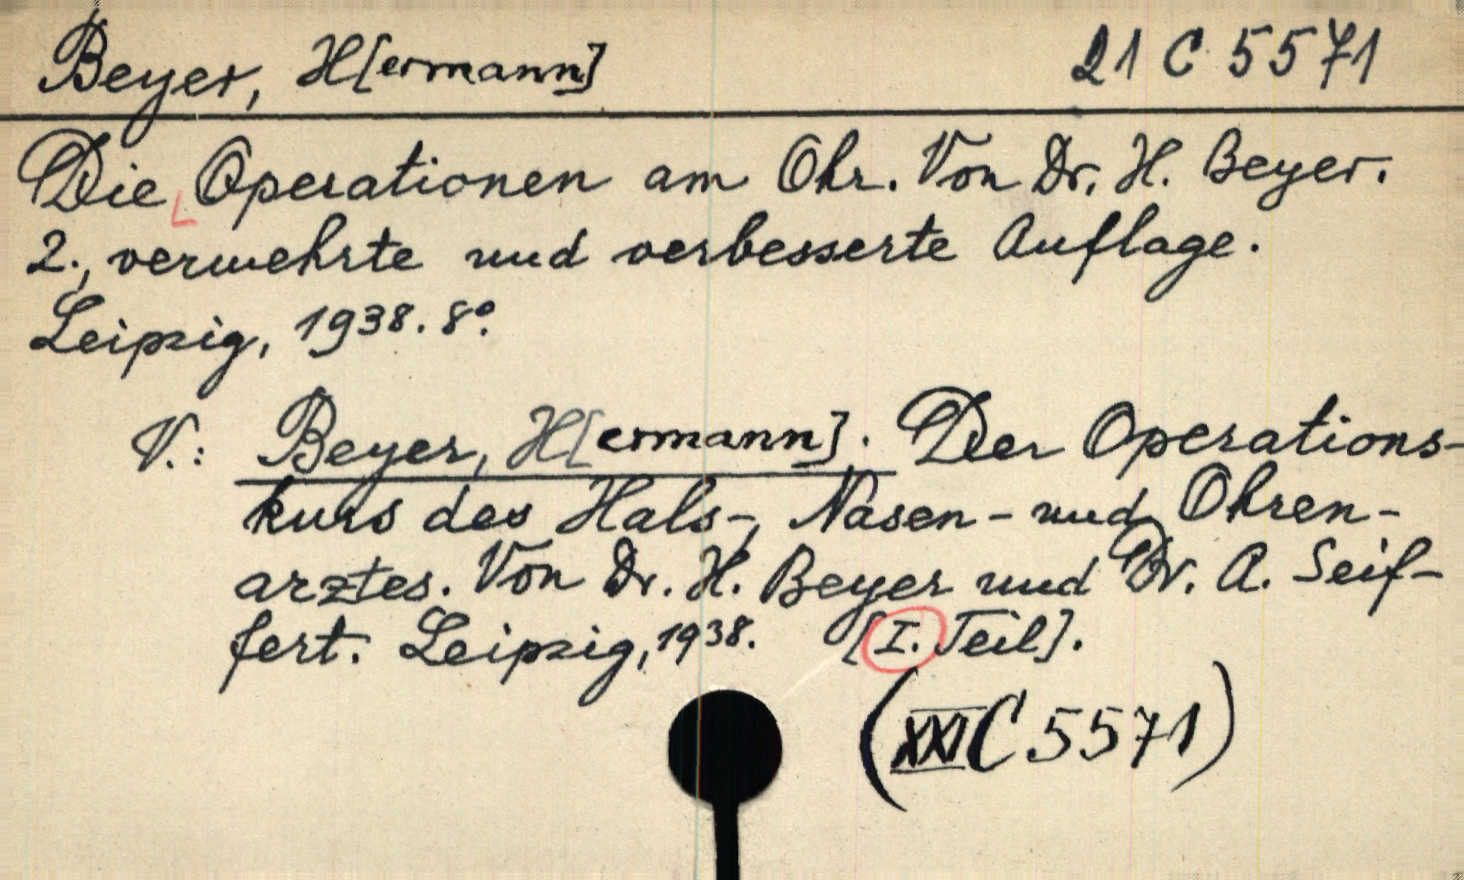 Beyer, H[ermann] 21 C 5571
Die Operationen am Ohr. Von Dr. H. Beyer.
2., vermehrte und verbesserte Auflage.
Leipzig, 1938. 8°.
V.: Beyer, H[ermann]. Der Operations-
kurs des Hals-, Nasen- und Ohren-
arztes. Von Dr. H. Beyer und Dr. A. Seif-
fert. Leipzig, 1938. [I. Teil].
(XXI C 5571)